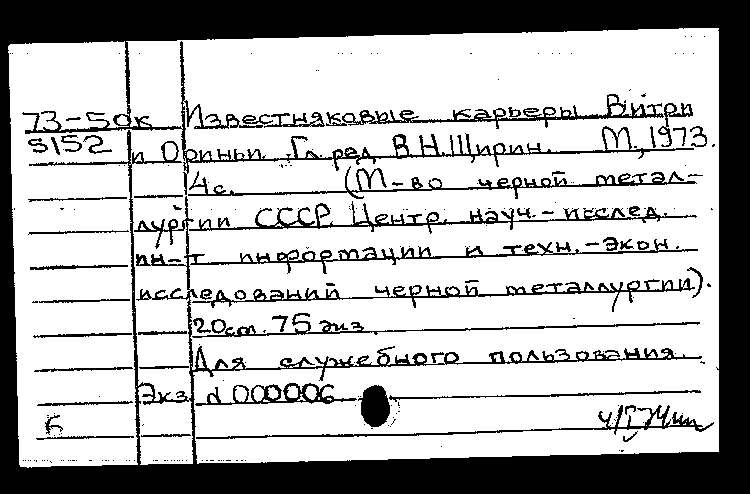 73-50к Известняковые карьеры Витри
5152 и Ориньи. Гл. ред. В.Н.Щирин. М., 1973.
4с. (М-во черной метал-
лургии СССР. Центр. науч.-исслед.
ин-т информации и техн.-экон.
исследований черной металлургии).
20см. 75 экз.
Для служебного пользования.
Экз. № 000006
Б